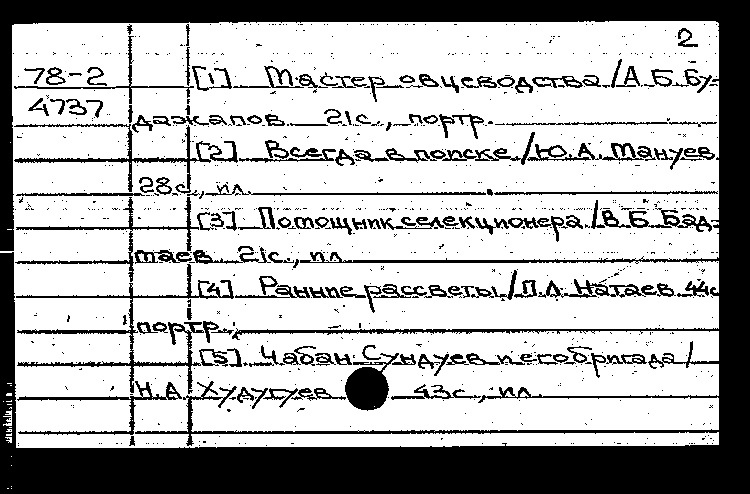 2
78-2 [1] Мастер овцеводства / А. Б. Бу-
4737 дажапов 21с., портр.
[2] Всегда в поиске / Ю. А. Мануев
28с., ил.
[3] Помощник селекционера / В. Б. Бад-
маев 21с., ил
[4] Ранние рассветы / П. Л. Натаев 44с
портр.;
[5] Чабан Сундуев и его бригада /
Н. А. Худугуев 43с., ил.